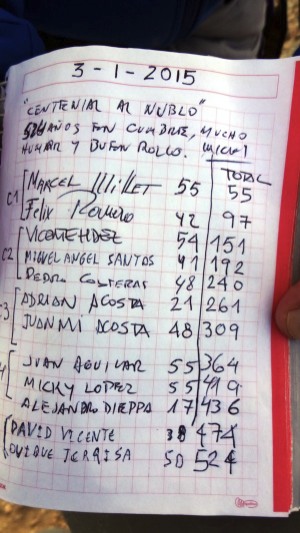 3-1-2015
"CENTENIAR AR NUBLO"
524 AÑOS EN CUMBRE, MUCHO
HUMAR Y BUEN ROLLO.
TOTAL
C1 MARCEL MILLET 55 55
FELIX ROMERO 42 97
C2 VICO MENDEZ 54 151
MIGUEL ANGEL SANTOS 41 192
PEDRO CONTERAS 48 240
3 ADRIAN ACOSTA 21 261
JUANMI ACOSTA 48 309
4 JUAN AGUILAR 55 364
MICKY LOPEZ 55 419
ALEJANDRO DIEPPA 17 436
DAVID VICENTE 38 474
QUIQUE 50 524